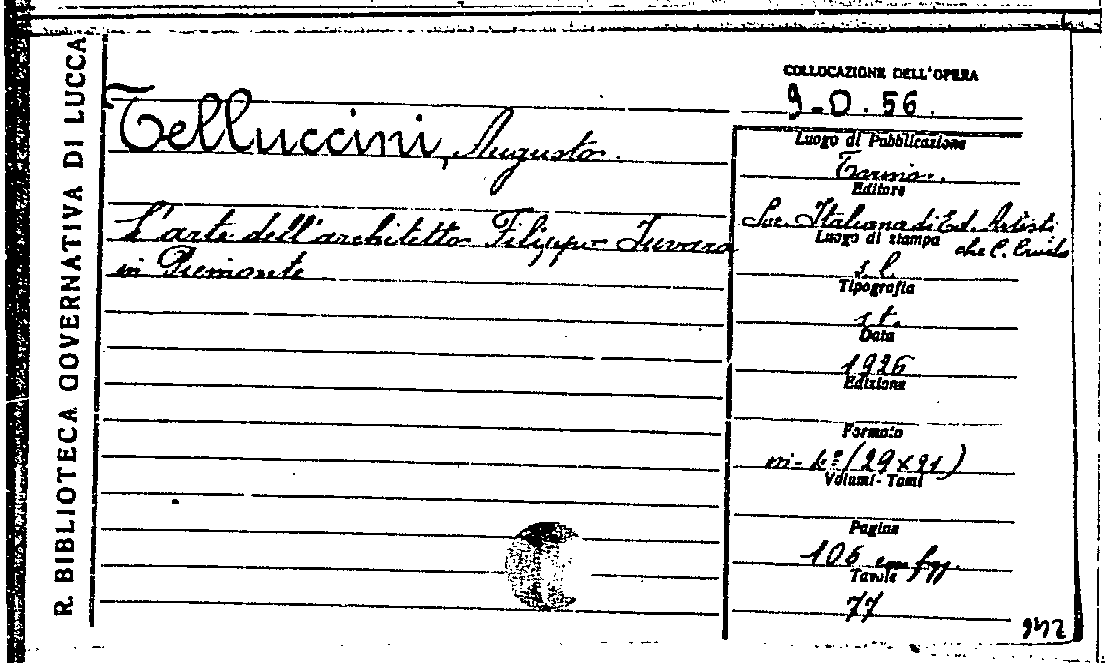 R. BIBLIOTECA GOVERNATIVA DI LUCCA
Telluccini, Augusto.
L'arte dell'architetto Filippo Juvara
in Piemonte
COLLOCAZIONE DELL'OPERA
9-D.56.
Luogo di Pubblicazione
Torino.
Editore
Soc. Italiana di Ed. Artisti
che C. Crudo
Luogo di stampa
s.l.
Tipografia
s.t.
Data
1926
Edizione
Formato
in-4º (29x21)
Volumi - Tomi
Pagine
106 con figg.
Tavole
77